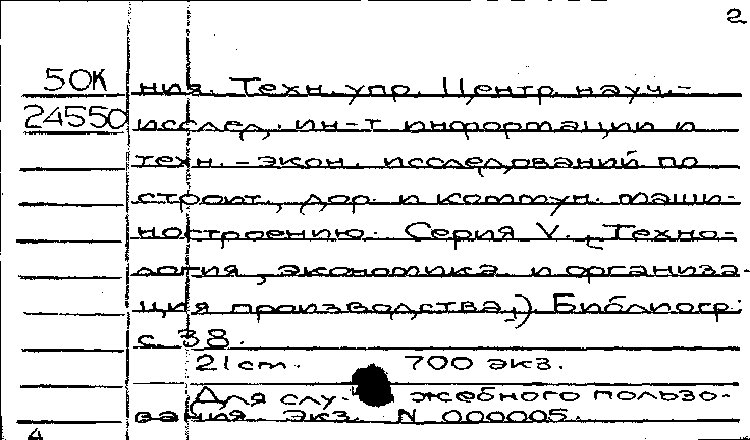 2
50К ния. Техн. упр. Центр. науч.-
24550 исслед. ин-т информации и
техн.-экон. исследований по
строит., дор. и коммун. маши-
ностроению. Серия V. Техно-
логия, экономика и организа-
ция производства). Библиогр:
с 38.
21 cm. 700 экз.
Для слу- жебного пользо-
вания. Экз. N 000005.
4